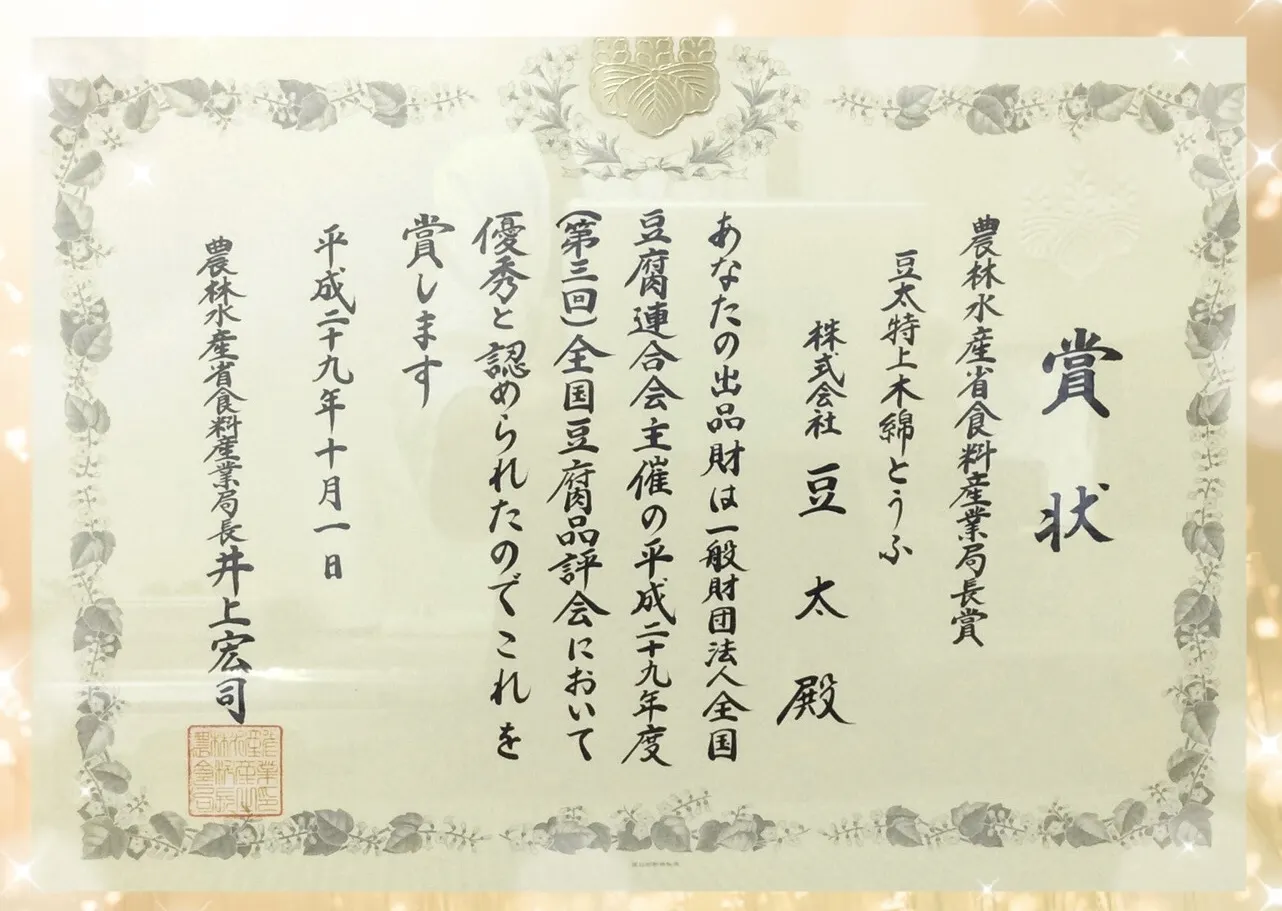 賞状
農林水産省食料産業局長賞
豆太特上木綿とうふ
株式会社 豆太殿
あなたの出品財は一般財団法人全国
豆腐連合会主催の平成二十九年度
(第三回)全国豆腐品評会において
優秀と認められたのでこれを
賞します
平成二十九年十月一日
農林水産省食料産業局長 井上宏司